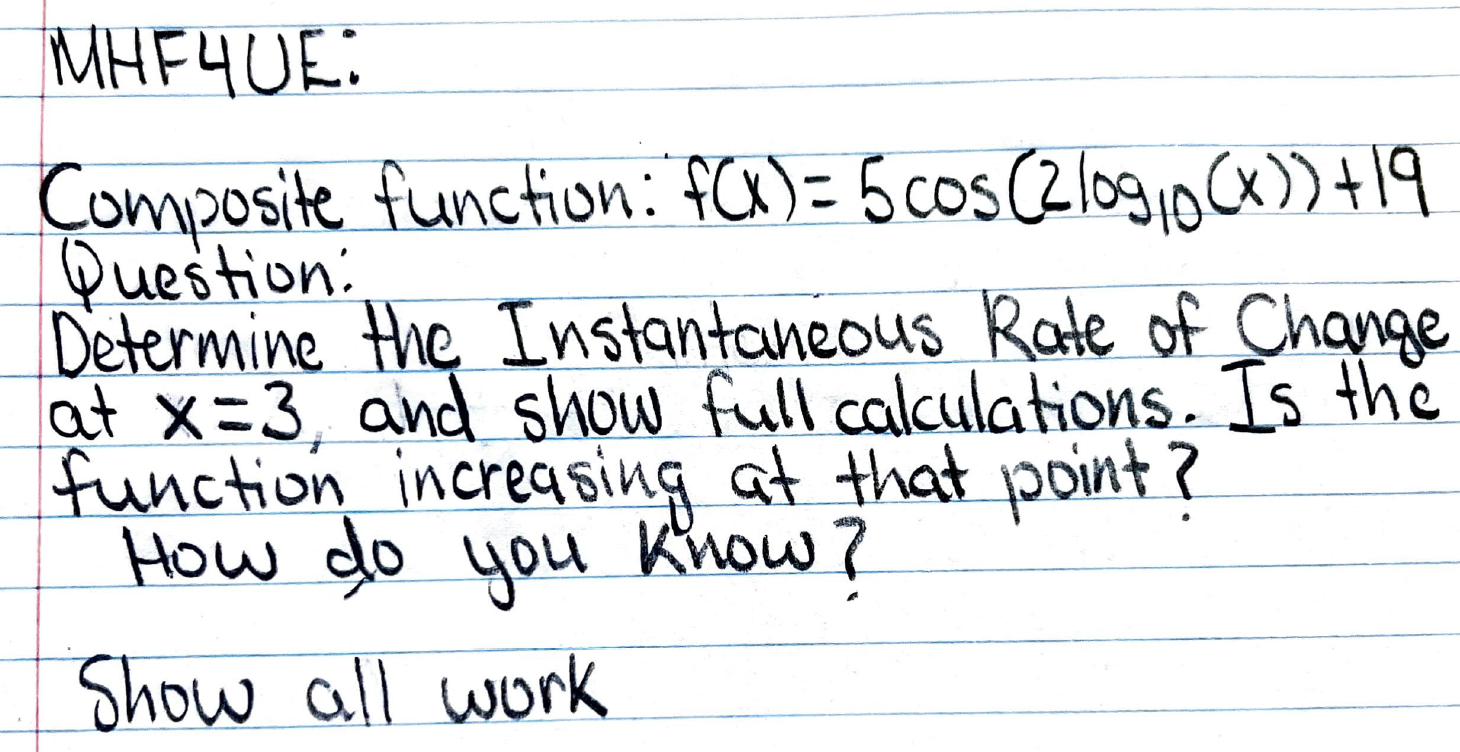 MHF4UE:
Composite function: f(x)= 5cos(2log₁₀(x))+19
Question:
Determine the Instantaneous Rate of Change
at x=3, and show full calculations. Is the
function increasing at that point?
How do you know?
Show all work